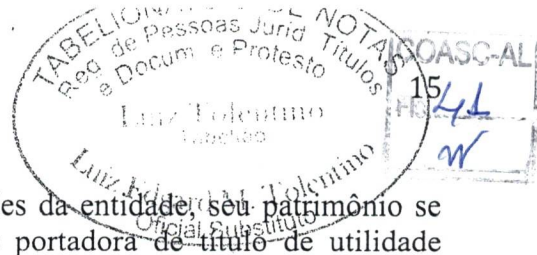 TABELIONATO DE NOTAS
Reg de Pessoas Jurid Titulos
e Docum e Protesto
Luiz Tolentino
Tabelião
Luiz Eduardo M. Tolentino
Oficial Substituto
COASC-AL
15
41
es da entidade, seu patrimônio se
portadora de título de utilidade